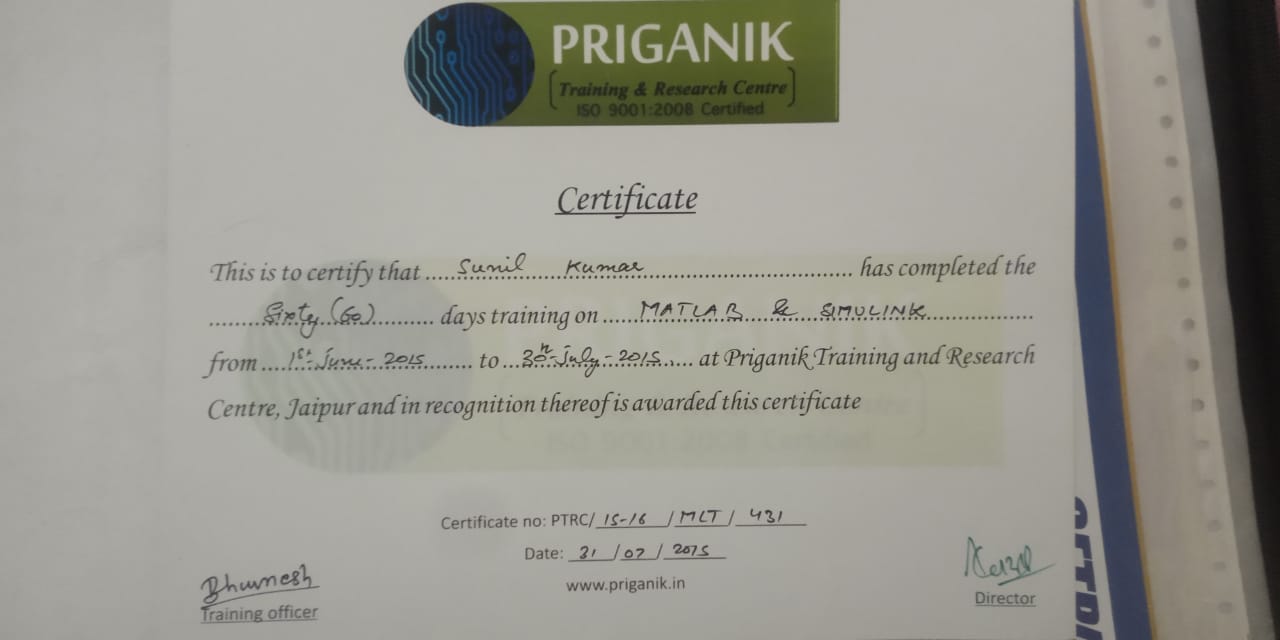 PRIGANIK
Training & Research Centre
ISO 9001:2008 Certified
Certificate
This is to certify that Sunil Kumar has completed the
Sixty (60) days training on MATLAB & SIMULINK
from 1st June - 2015 to 30th July - 2015 at Priganik Training and Research
Centre, Jaipur and in recognition thereof is awarded this certificate
Certificate no: PTRC/ 15-16 / MLT / 431
Date: 31 / 07 / 2015
www.priganik.in
Bhumesh
Training officer
Director